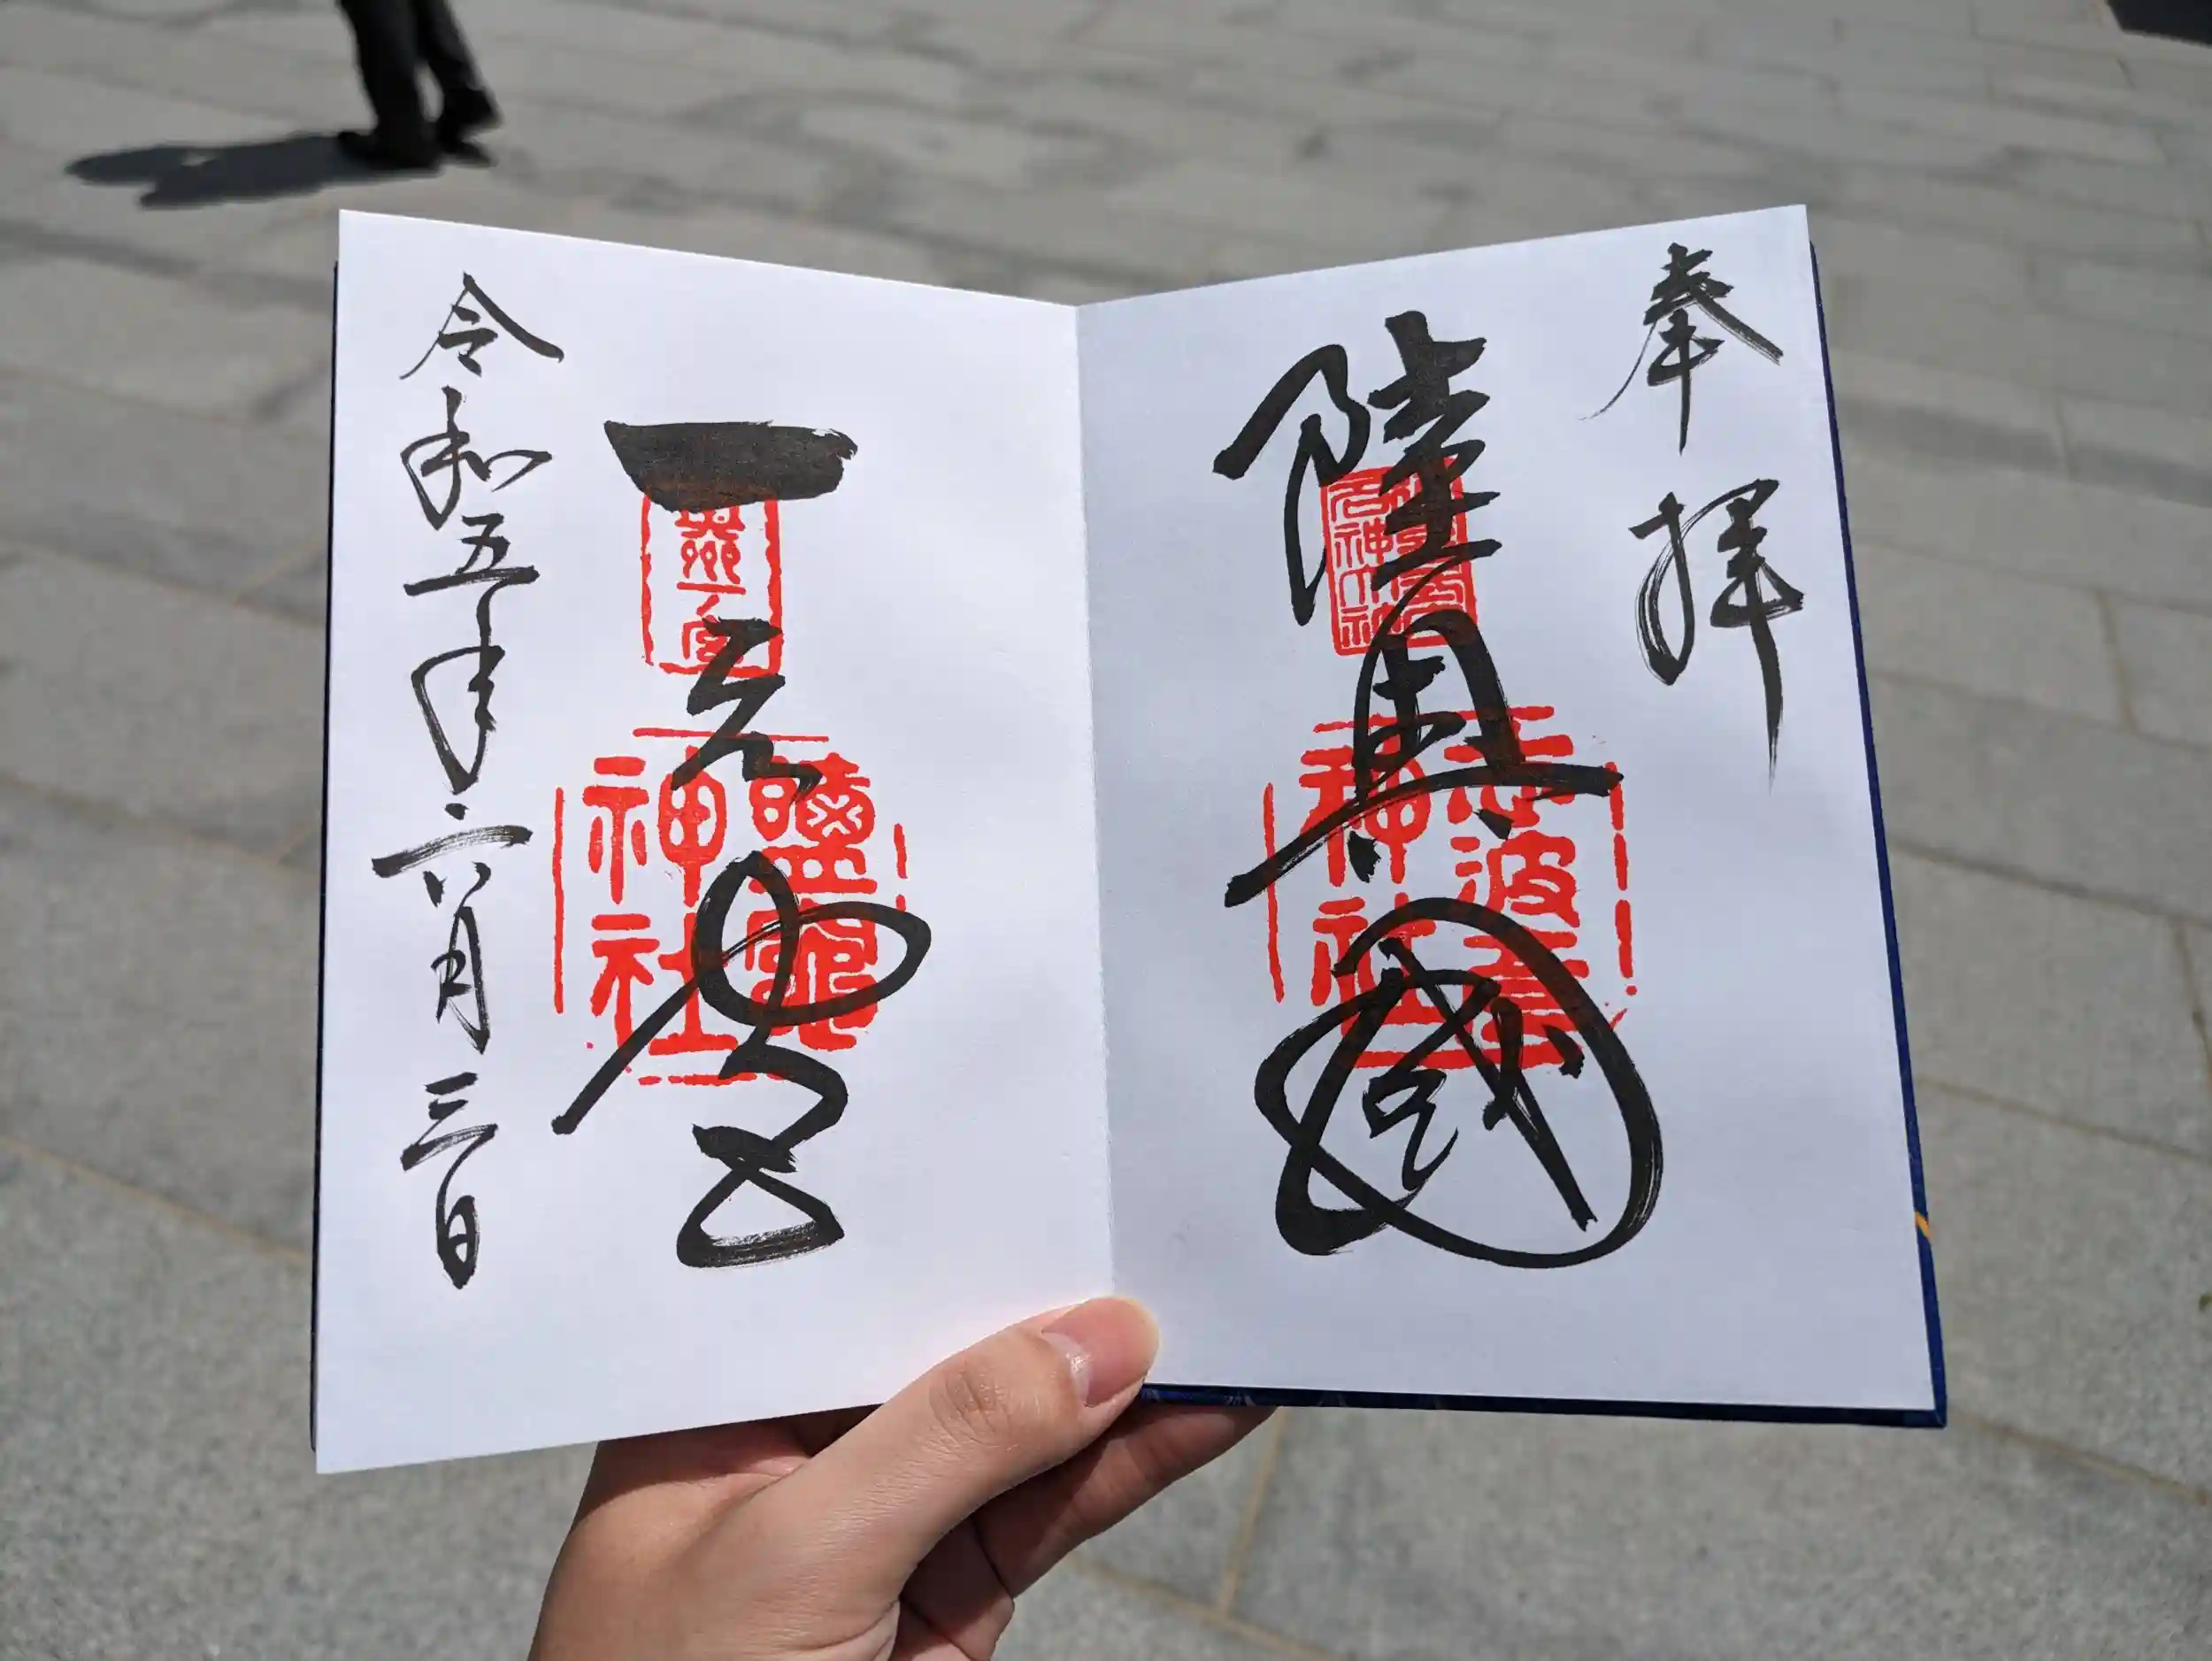 奉拝
陸奥國
志波彦
神社
名神大社
一之宮
鹽竈
神社
令和五年六月三日